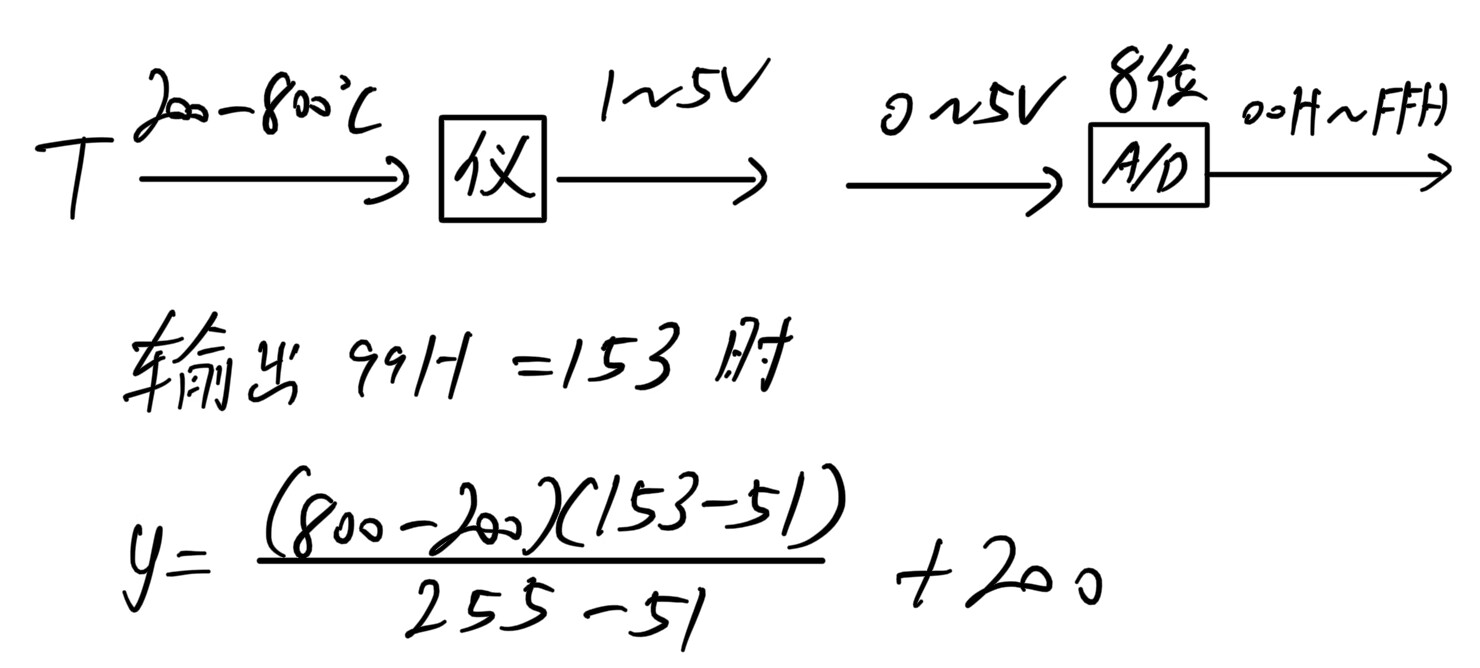 T 200-800℃ 仪 1~5V 0~5V 8位 A/D 00H~FFH
输出 99H =153 时
y= (800-200)(153-51) / 255-51 +200